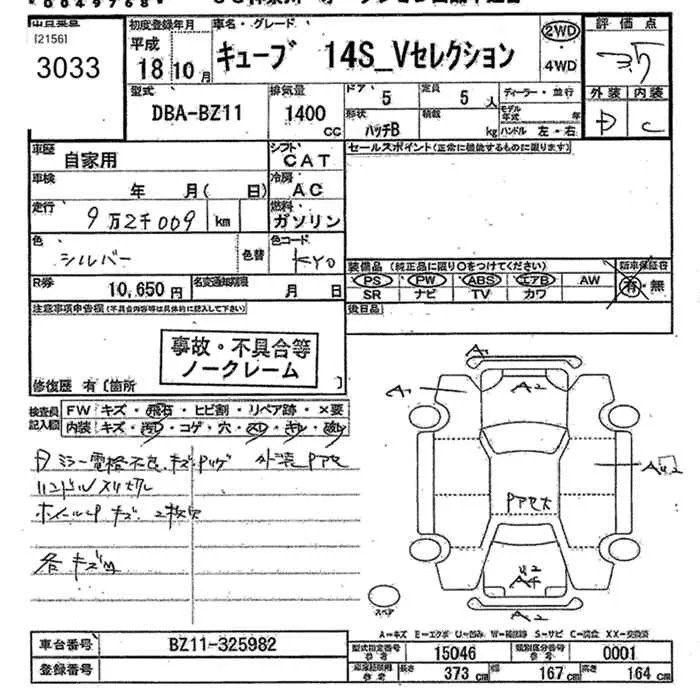 0049768
[2156]
3033
初度登録年月
平成
18年10月
車名・グレード
キューブ 14S_Vセレクション
2WD
・4WD
評価点
3.5
外装 内装
D C
型式
DBA-BZ11
排気量
1400
CC
ドア
5
定員
5人
形状
ハッチB
積載
kg
ディーラー・並行
モデル年式 年
ハンドル 左・右
車歴
自家用
シフト
CAT
車検
年 月( 日)
冷房
AC
走行
9万2千009 km
燃料
ガソリン
色
シルバー
色替
色コード
KY0
R券
10,650円
名変通知期限
月 日
セールスポイント(正常に機能するものに限ります)
装備品 (純正品に限り○をつけてください)
PS PW ABS エアB AW
SR ナビ TV カワ
新車保証書
有・無
後日品
注意事項申告欄(不具合内容等は具体的に記入して下さい)
事故・不具合等
ノークレーム
修復歴 有〔箇所 〕
検査員記入欄
FW キズ・飛石・ヒビ割・リペア跡・×要
内装 キズ・・コゲ・穴・・・
ハンドルスリ切レ
各キズ凹
A1
A2
A1
A2
スペア
A=キズ E=エクボ U=凹み W=補修跡 S=サビ C=腐食 XX=交換済
車台番号
BZ11-325982
登録番号
型式指定番号
参考
15046
類別区分番号
参考
0001
長さ
373 cm
幅
167 cm
高さ
164 cm